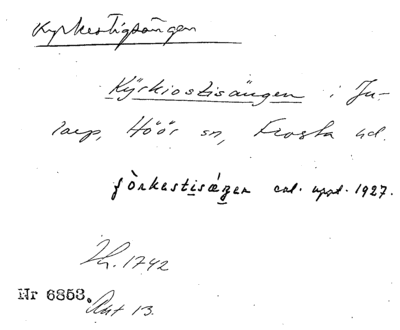 Kyrkestigsängen
Kyrkiostisängen i Ju-
larp, Höör sn, Frosta hd.
fònkestisǽŋen enl. uppt. 1927.
1742
Nr 6853. Akt 13.